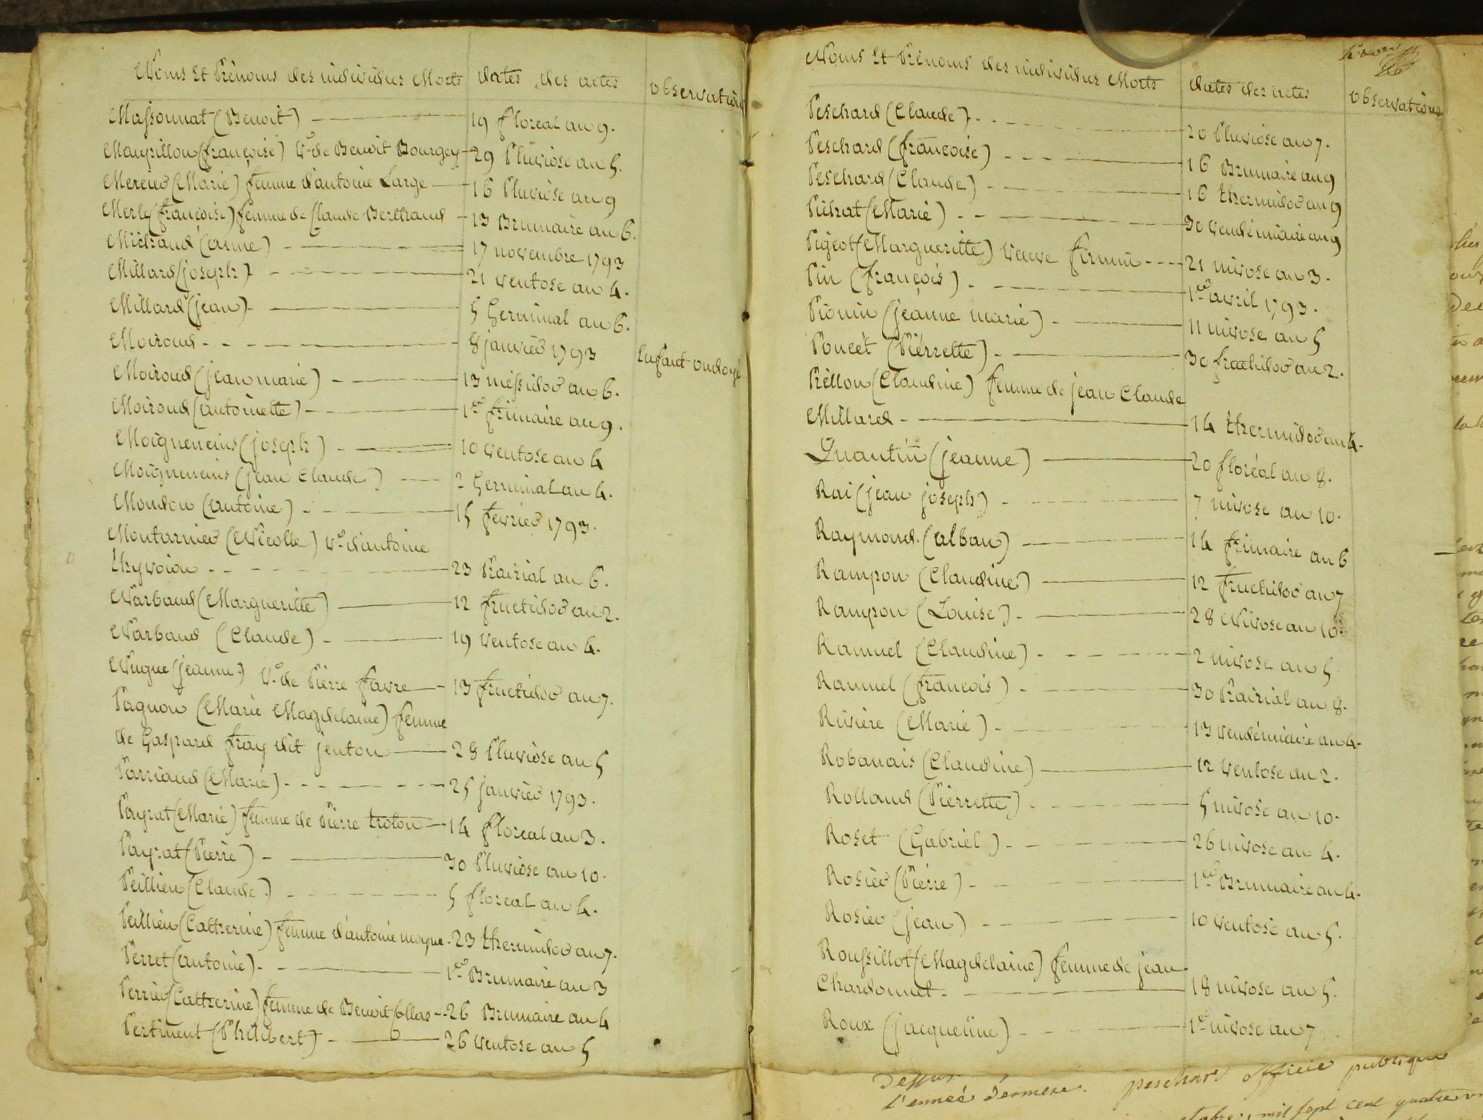 Noms Et Prénoms des individus Morts dates des actes observations
Massonnat (Benoit) 19 floreal an 9.
Mauvillon (françoise) Ve de Benoit Bourgey 29 Pluviose an 5.
(Marie) femme d'antoine Large 16 Pluviose an 9
Merle (françoise) femme de Claude Berthaud 13 Brumaire an 6.
(anne) 17 novembre 1793
Millard (joseph) 21 ventose an 4.
Millard (jean) 5 Germinal an 6.
Moiroud 8 janvier 1793 Enfant ondoyé
Moiroud (jean marie) 13 messidor an 6.
Moiroud (antoinette) 1er frimaire an 9.
Moigneneins (joseph) 10 ventose an 4
Moigneneins (jean Claude) 2 Germinal an 4.
Mondon (antoine) 15 fevrier 1793.
(Nicolle) Ve d'antoine
Thyvoion 23 Prairial an 6.
Narbaud (Margueritte) 12 fructidor an 2.
Narbaud (Claude) 19 ventose an 4.
Nugue (jeanne) Ve de Pierre favre 13 fructidor an 7.
Pagnon (Marie Magdelaine) femme
de Gaspard fray dit jenton 28 Pluviose an 5
Parriaud (Marie) 25 janvier 1793.
Payrat (Marie) femme de Pierre troton 14 floreal an 3.
Payrat (Pierre) 30 Pluviose an 10.
Peillieu (Claude) 5 floreal an 4.
Peillieu (Catherine) femme d'antoine moyne 23 thermidor an 7.
Perret (antoine) 1er Brumaire an 3
Perrier (Catherine) femme de Benoit 26 Brumaire an 4
Pertinent (Philibert) 26 ventose an 5
Noms Et Prénoms des individus Morts dates des actes observations
Peschard (Claude) 20 Pluviose an 7.
Peschard (françoise) 16 Brumaire an 9
Peschard (Claude) 16 thermidor an 9
Piérat (Marie) 30 vendémiaire an 9
Pigeot (Margueritte) veuve firmin 21 nivose an 3.
Pin (françois) 1er avril 1793.
Pionin (jeanne marie) 11 nivose an 5
Poncet (Pierrette) 30 fructidor an 2.
Prillon (Claudine) femme de jean Claude
Millard 14 thermidor an 4.
Quantin (jeanne) 20 floréal an 8.
Rai (jean joseph) 7 nivose an 10.
Raymond (alban) 14 frimaire an 6
Rampon (Claudine) 12 fructidor an 7
Rampon (Louise) 28 Nivose an 10.
Ramuel (Claudine) 2 nivose an 5
Ramuel (francois) 30 Prairial an 8.
Rivière (Marie) 13 vendémiaire an 4.
Robanais (Claudine) 12 ventose an 2.
Rolland (Pierrette) 5 nivose an 10.
Roset (Gabriel) 26 nivose an 4.
Rosier (Pierre) 1er Brumaire an 4.
Rosier (jean) 10 ventose an 5.
Roussillot (Magdelaine) femme de jean
Chardonnet 18 nivose an 5.
Roux (jacqueline) 1er nivose an 7
Dessus
l'année d'ernière. peschard officie publique
mil sept cent quatre